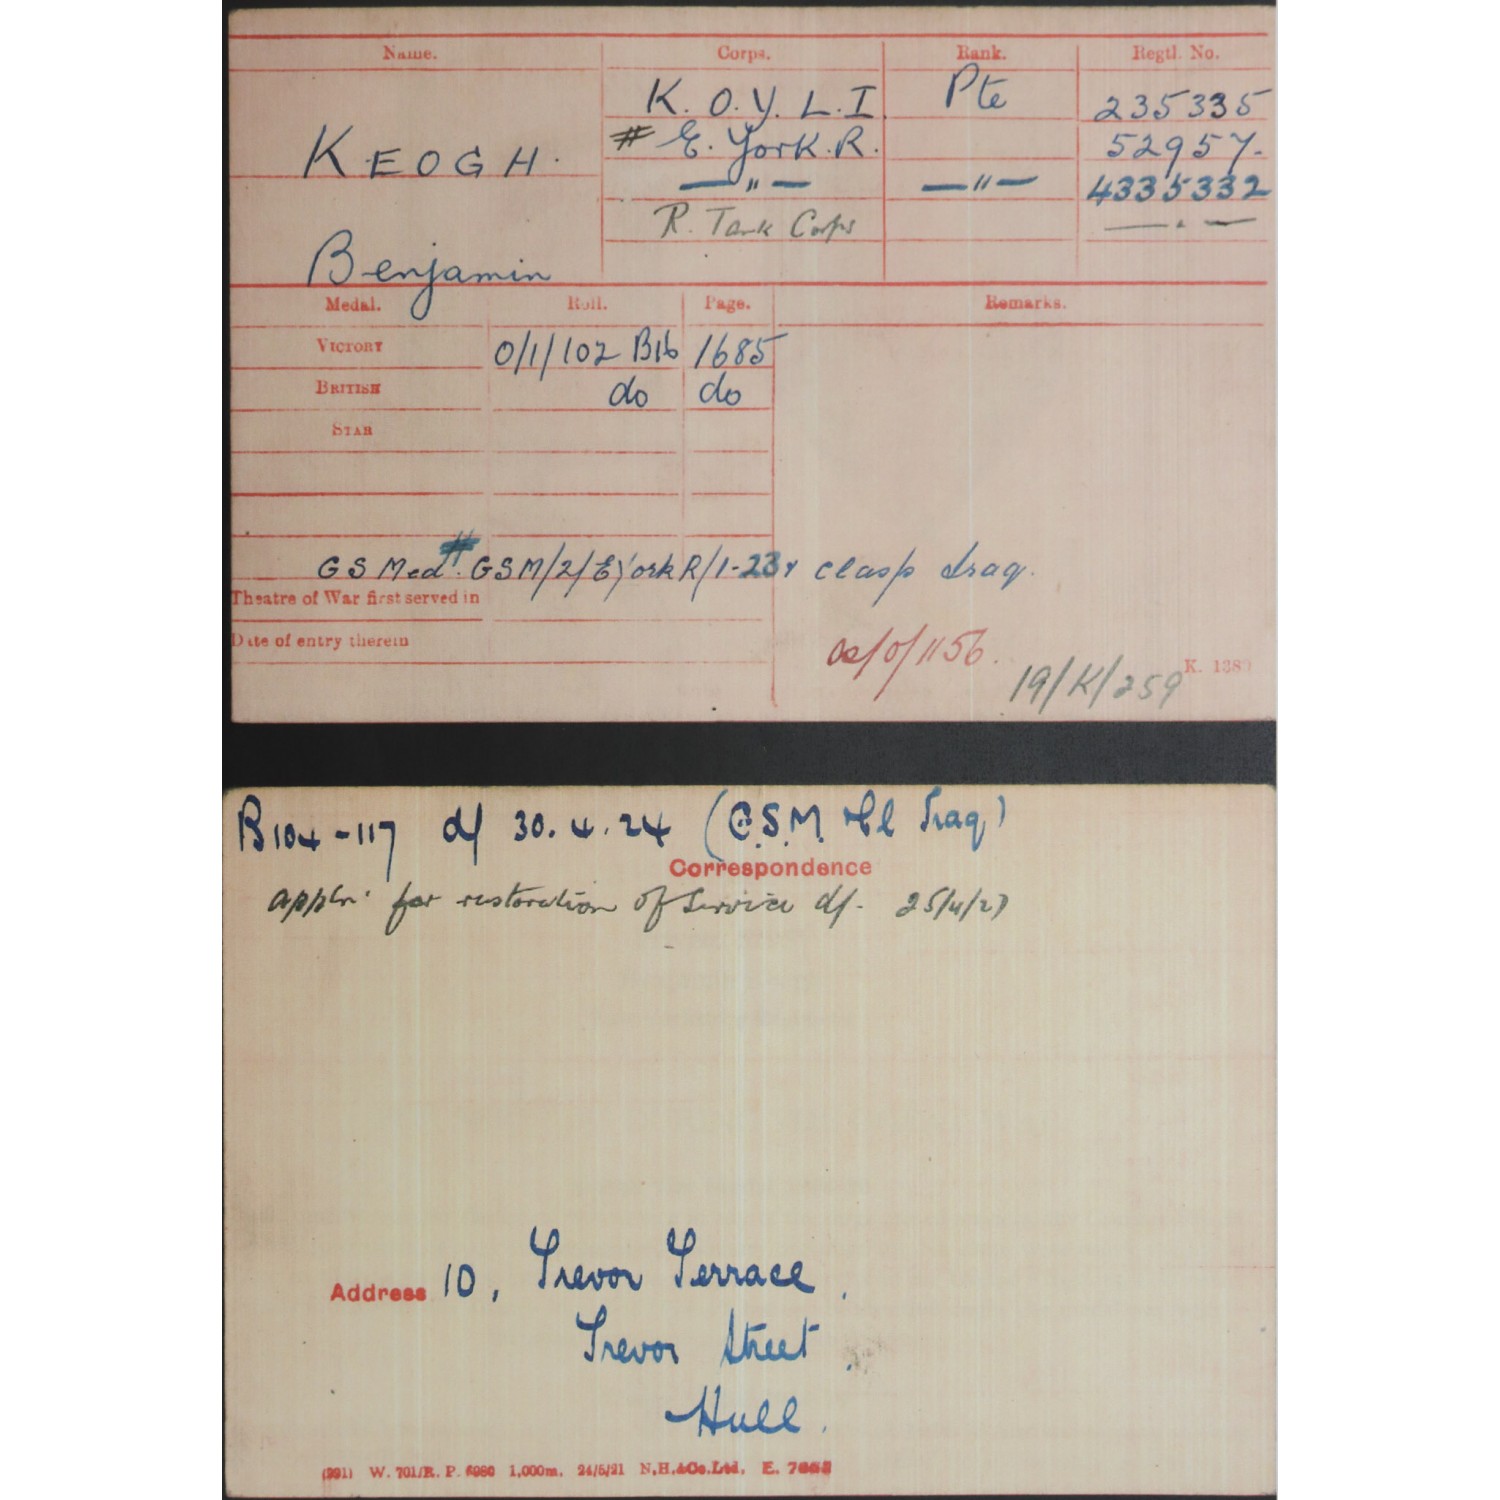 Name. Corps. Rank. Regtl. No.
K. O. Y. L. I. Pte 235335
KEOGH. # E. York. R. 52957.
— " — — " — 4335332
R. Tank Corps — " —
Benjamin
Medal. Roll. Page. Remarks.
VICTORY 0/1/102 B16 1685
BRITISH do do
STAR
GS Med #. GSM/2/E York R/1-23 clasp Iraq.
Theatre of War first served in
Date of entry therein
/0/1156.
19/K/259 K. 1380
B104-117 d/ 30.4.24 (G.S.M. & Cl Iraq)
Correspondence
appln. for restoration of Service d/- 25/4/27
Address 10, Trevor Terrace.
Trevor Street.
Hull.
(991) W. 701/R. P. 6980 1,000m. 24/5/21 N.H.&Co.Ltd. E.